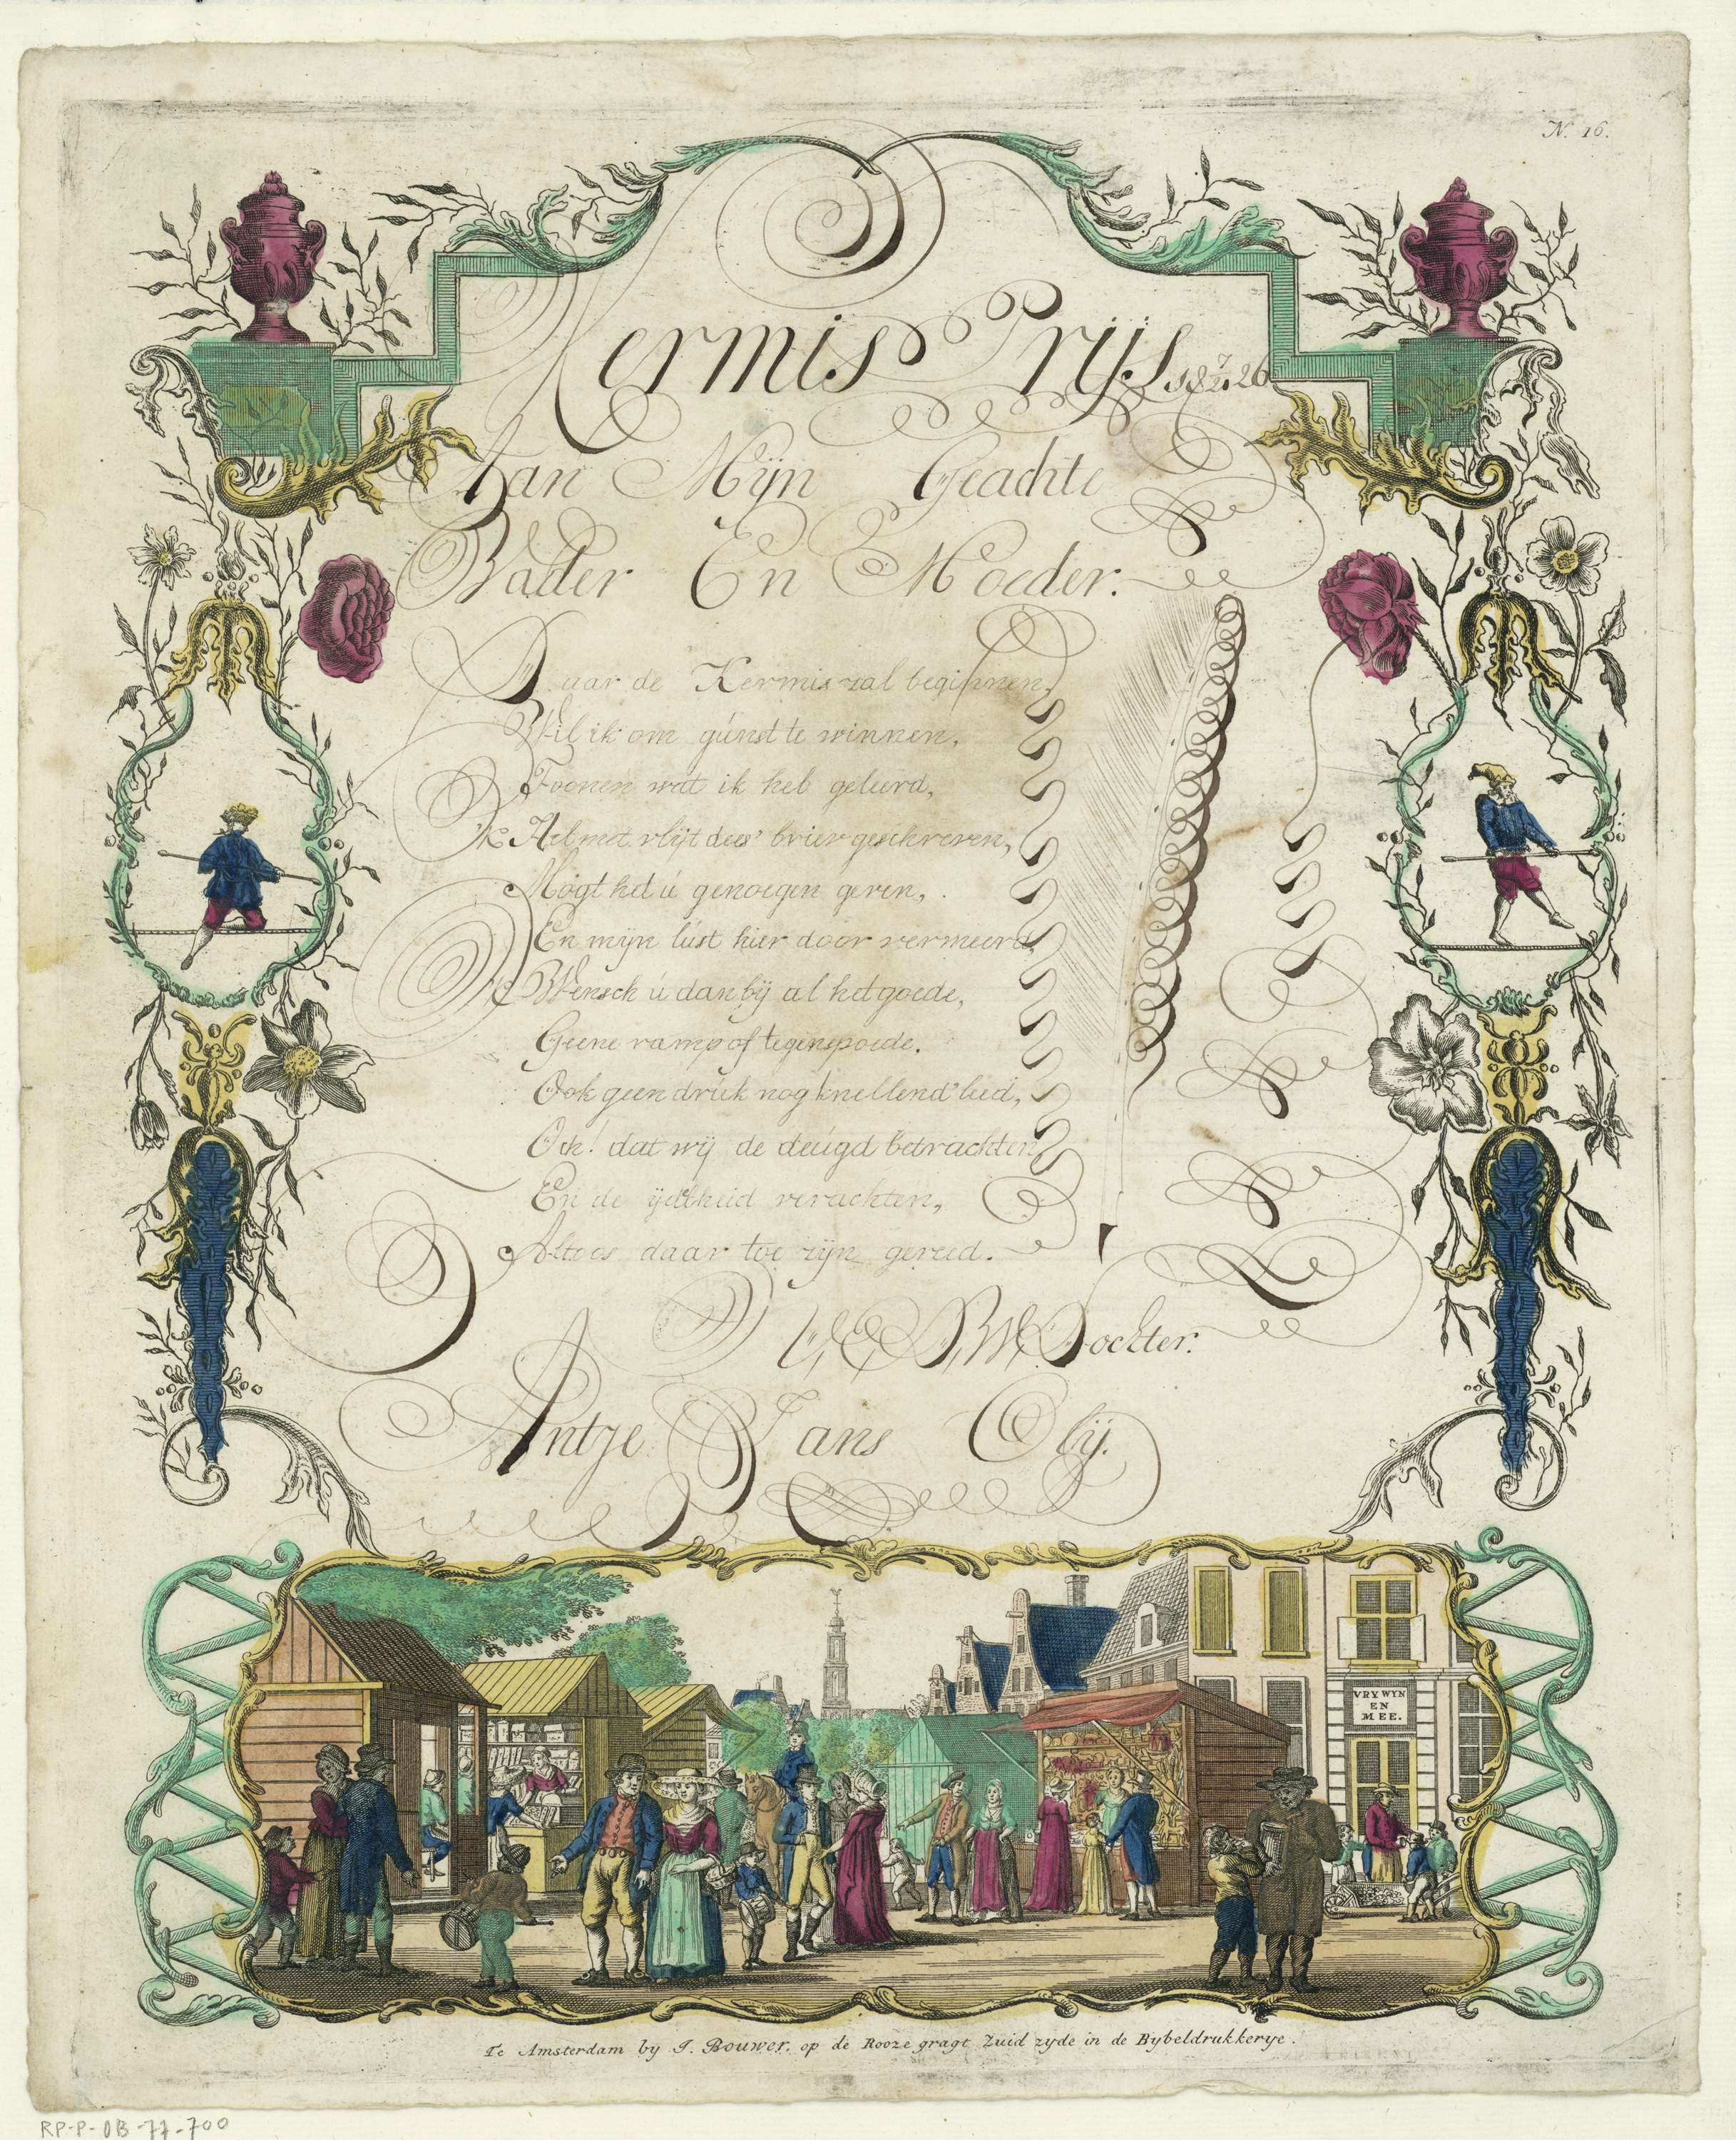 N. 16.
Kermis Prijs 1826
Aan Mijn Geachte
Vader En Moeder.
Daar de Kermis zal beginnen,
Wil ik om gúnst te winnen,
Toonen wat ik heb geleerd,
'k Heb met vlijt dees' brief geschreven,
Mogt het ú genoegen geven,
En mijn lúst hier door vermeerd,
'k Wensch ú dan bij al het goede,
Geene ramp of tegenspoede,
Ook geen drúk nog knellend' leed,
Och! dat wij de deúgd betrachten
En de ijdelheid verachten,
Altoos daar toe zijn gereed.
U, E, D, W, Dochter.
Antje Jans Olij.
VRY WYN
EN
MEE.
Te Amsterdam by J. Bouwer. op de Rooze gragt Zuid zyde in de Bybeldrukkerye.
RP-P-OB-77-700